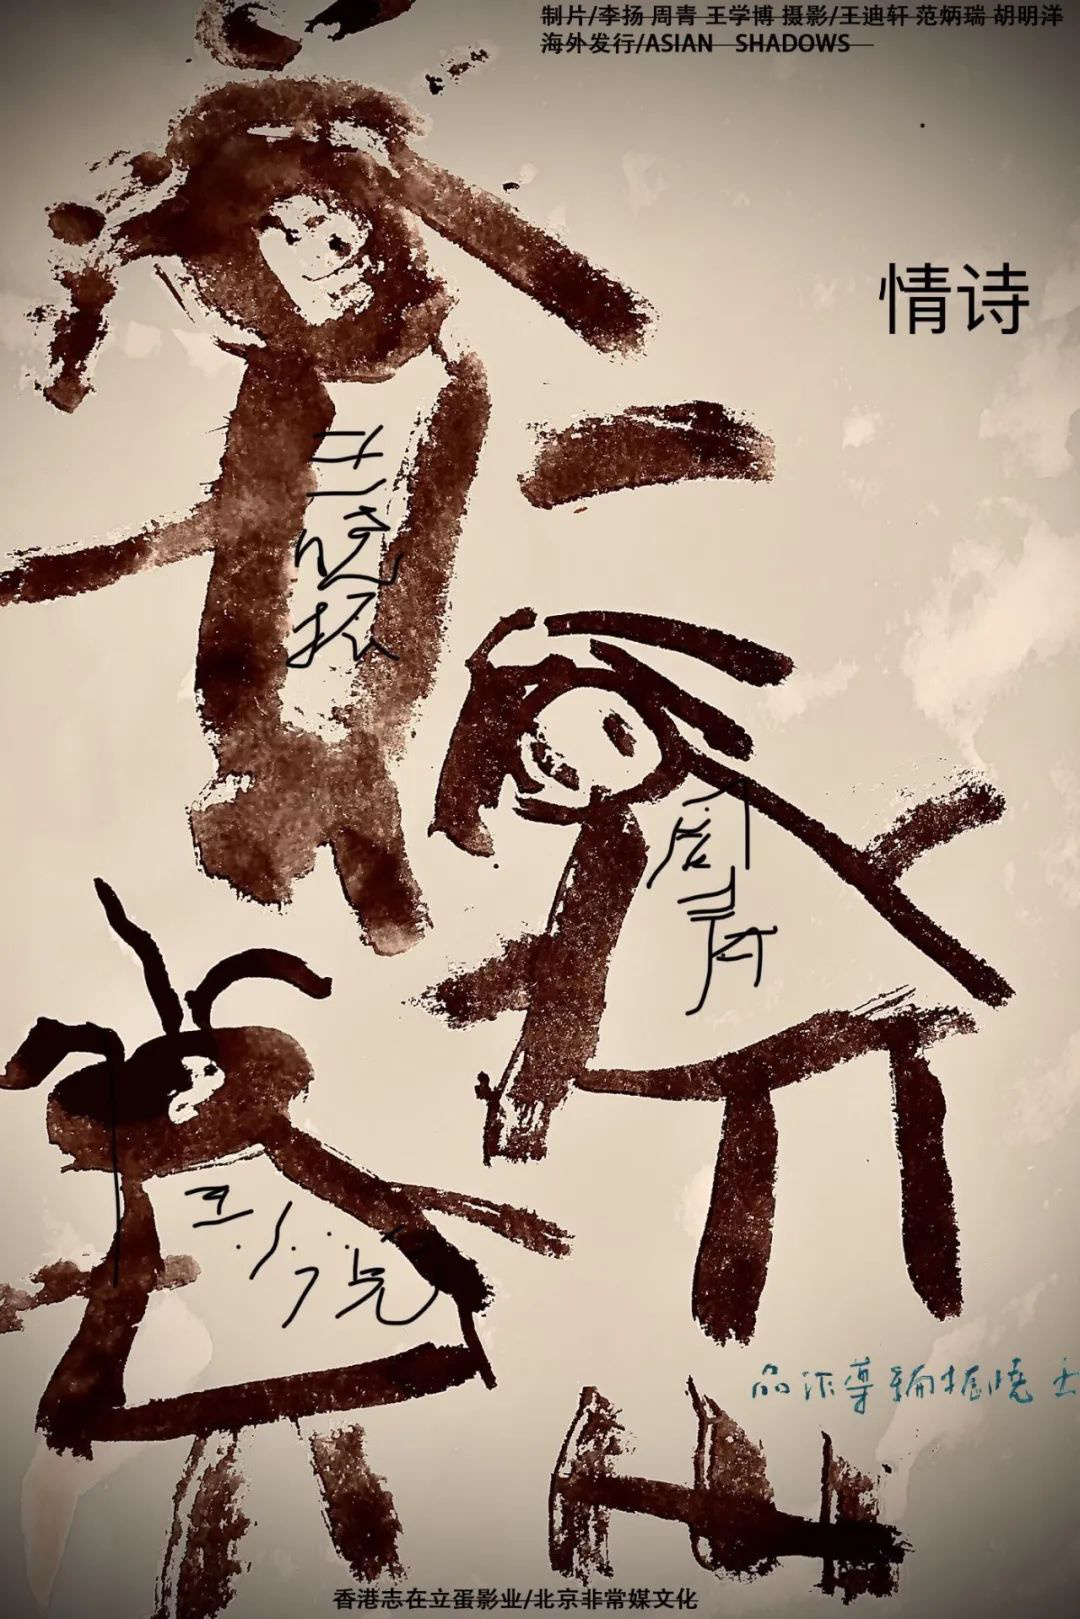 制片/李扬 周青 王学博 摄影/王迪轩 范炳瑞 胡明洋
海外发行/ASIAN SHADOWS
情诗
王晓振
周青
王小完
品作導編振曉王
香港志在立蛋影业/北京非常媒文化